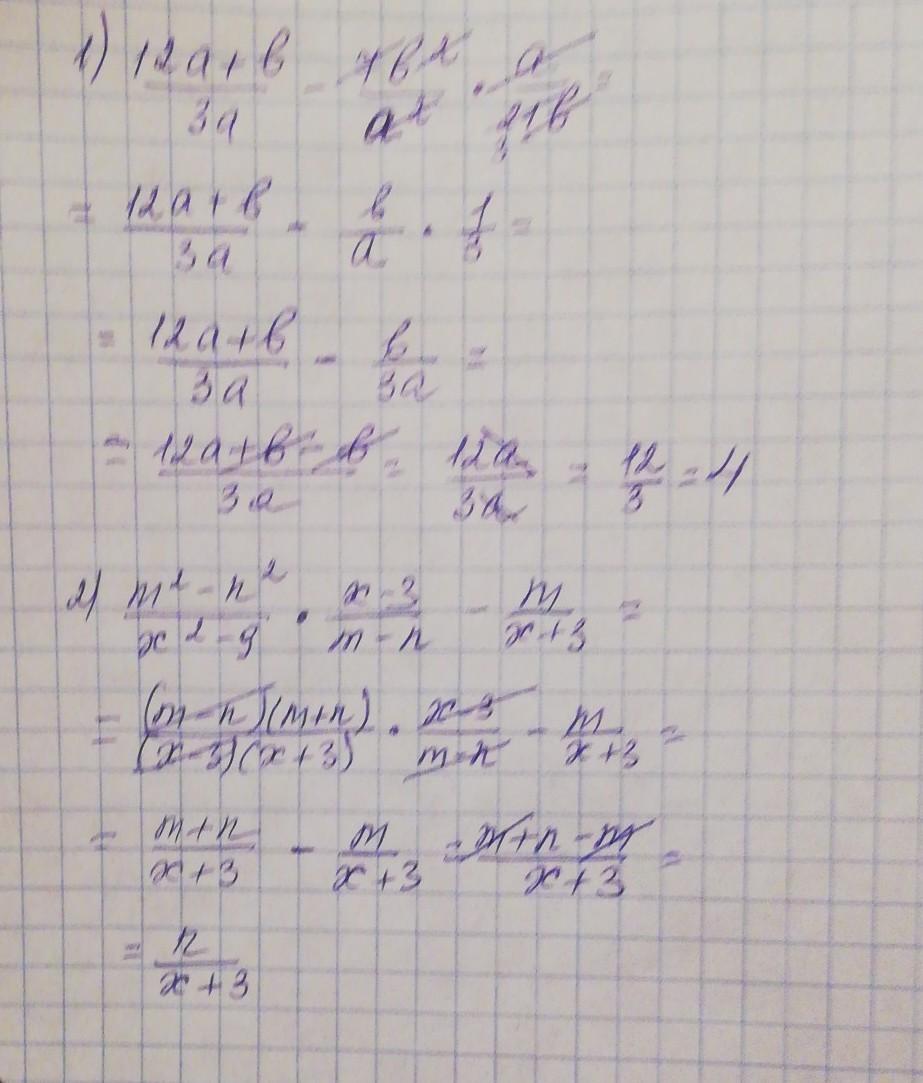 1) (12a + b)/(3a) - (7b²)/(a²) · a/(21b) =
= (12a + b)/(3a) - b/a · 1/3 =
= (12a + b)/(3a) - b/(3a) =
= (12a + b - b)/(3a) = (12a)/(3a) = 12/3 = 4
2) (m² - n²)/(x² - 9) · (x - 3)/(m - n) - m/(x + 3) =
= ((m - n)(m + n))/((x - 3)(x + 3)) · (x - 3)/(m - n) - m/(x + 3) =
= (m + n)/(x + 3) - m/(x + 3) = (m + n - m)/(x + 3) =
= n/(x + 3)